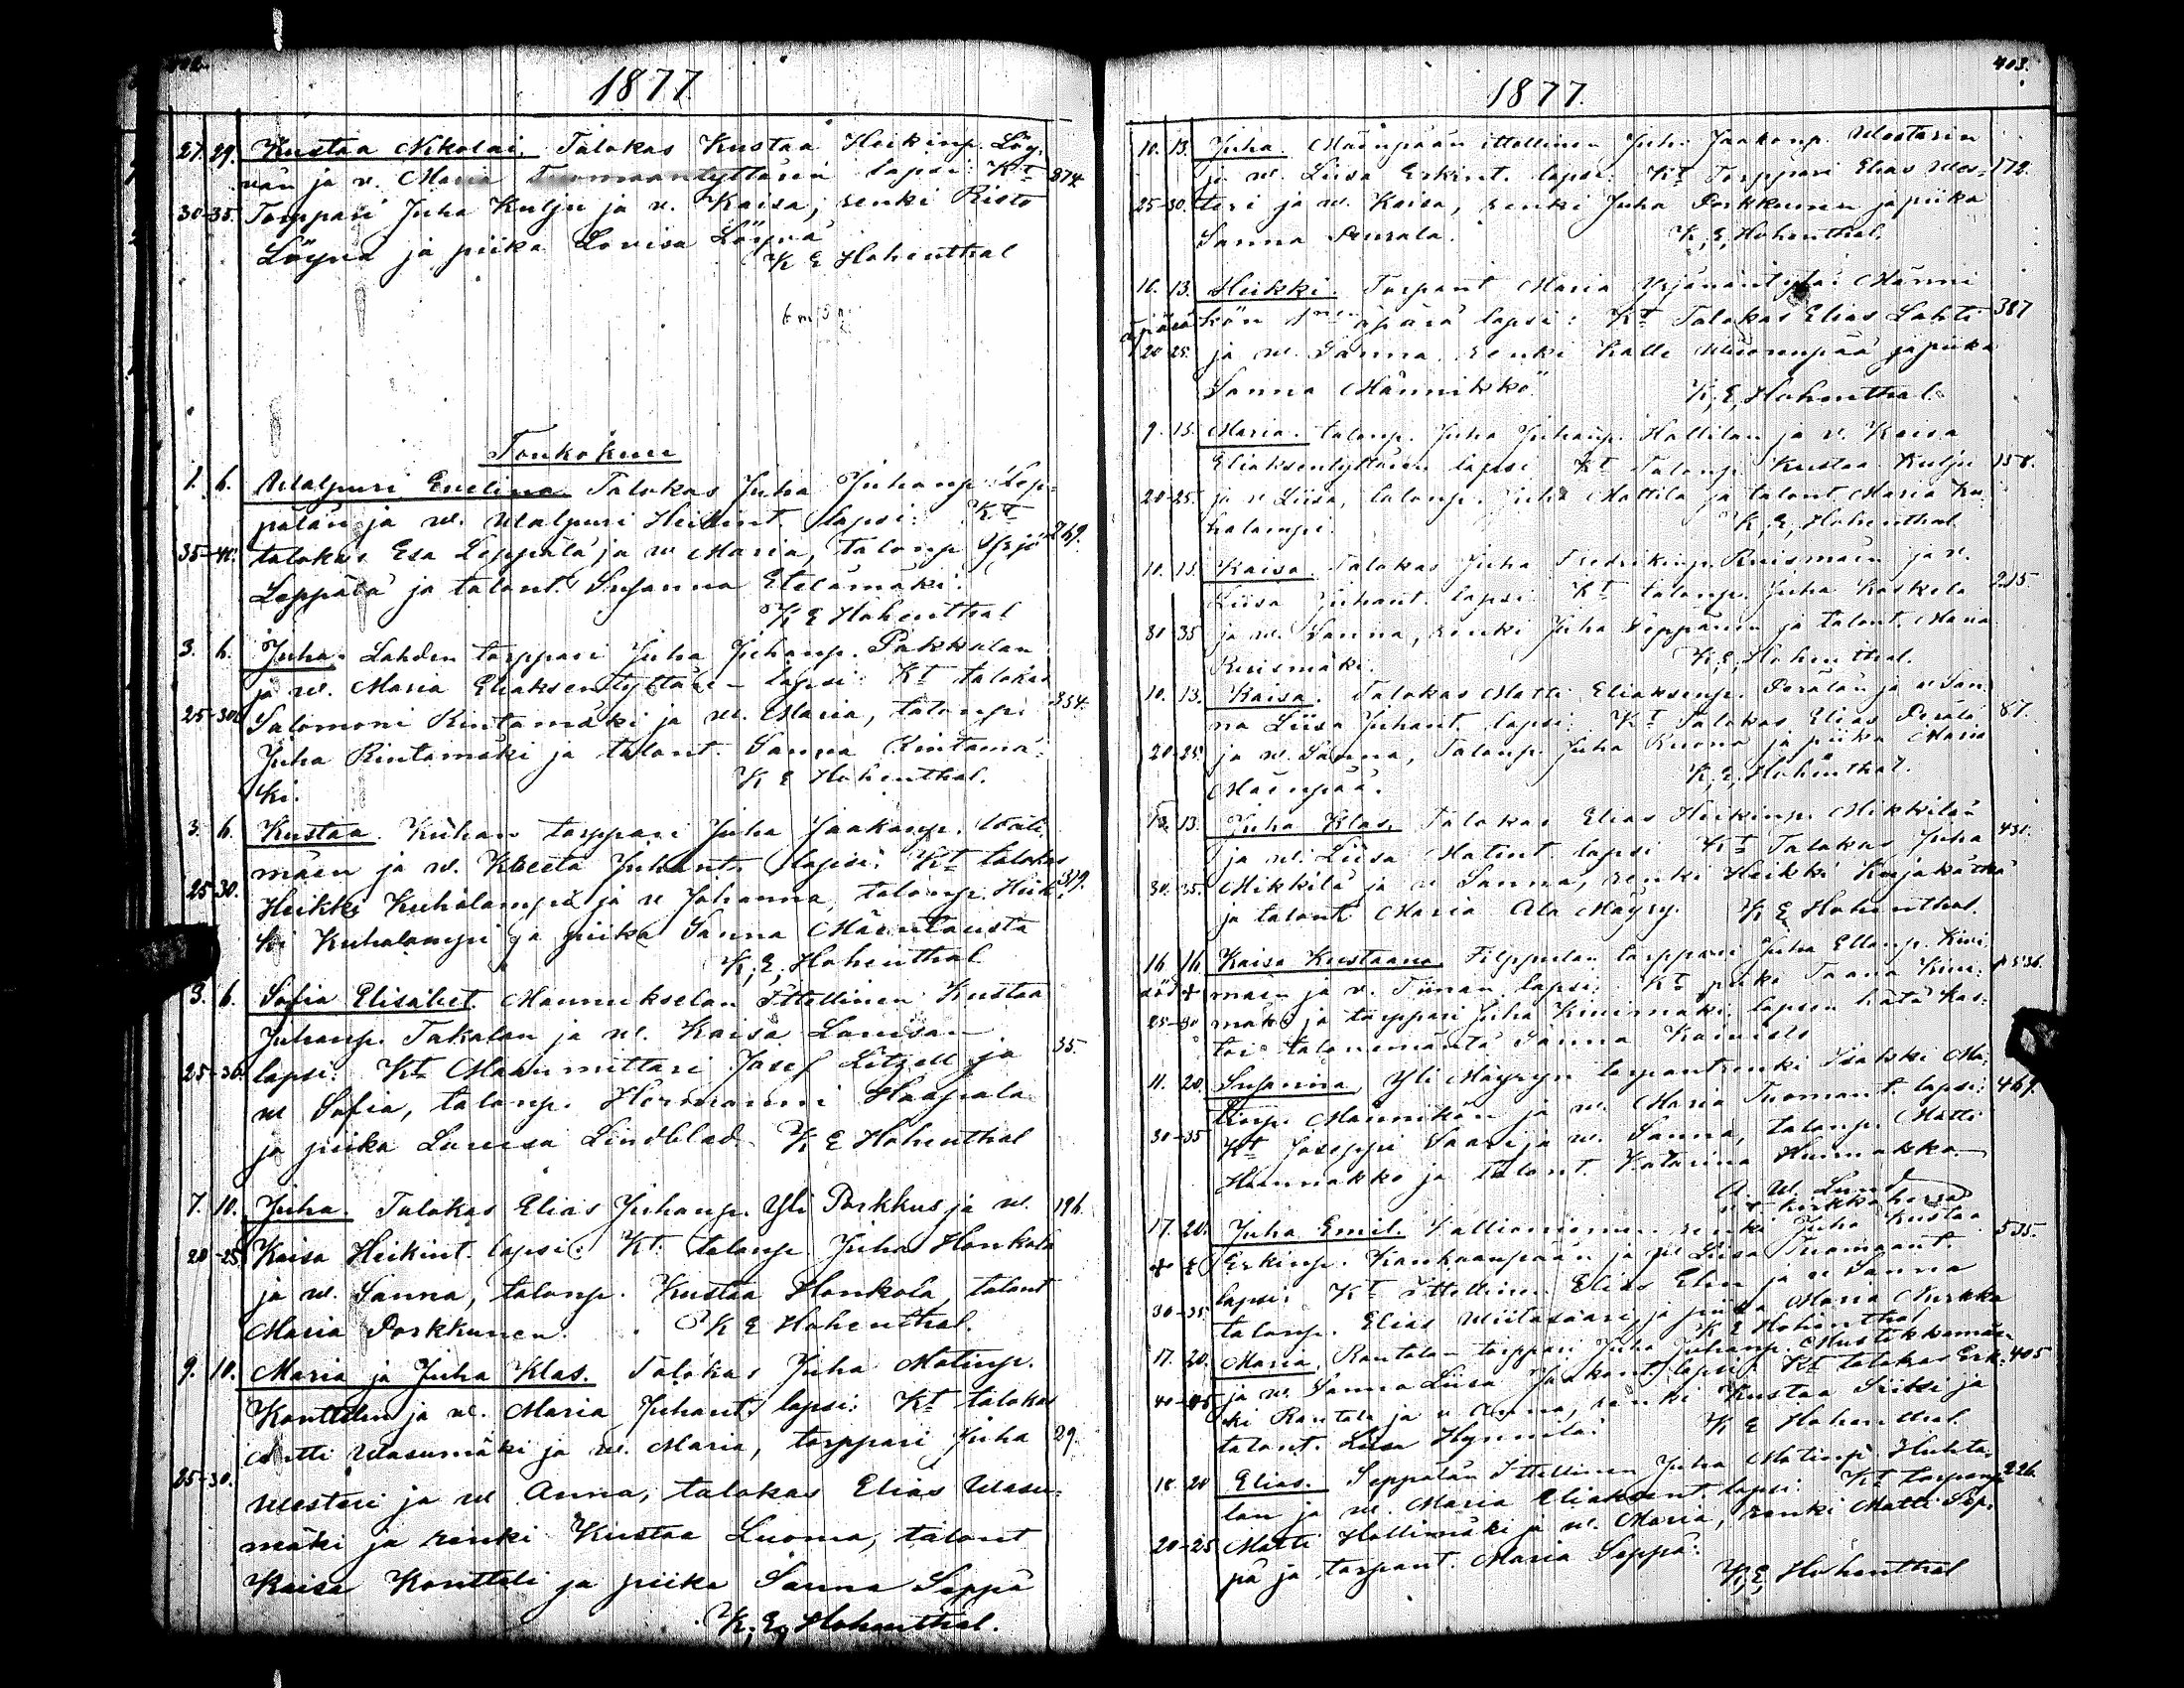 1877
27. 29. Kustaa Nikolai. Talokas Kustaa Heikinp. Löy-
nän ja v. Maria Tuomaantyttären lapsi: Kt 374
30-35. Torppari Juha Kulju ja v. Kaisa, renki Risto
Löynä ja piika Lovisa Löynä
K E Hohenthal
Toukokuu
1. 6. Walpuri Evelina. Talokas Juha Juhanp. Lep-
pälän ja w. Walpuri Heikint. lapsi: Kt 269.
35-40. talokas Esa Leppälä ja w Maria, talonp. Yrjö
Leppälä ja talont. Susanna Etelämäki.
K E Hohenthal
3. 6. Juha. Lahden torppari Juha Juhanp. Pakkalan
ja w. Maria Eliaksentyttären lapsi: Kt talokas 354.
25-30. Salomoni Rintamäki ja w. Maria, talonp.
Juha Rintamäki ja talont. Sanna Rintamä-
ki. K E Hohenthal.
3. 6. Kustaa. Kuhan torppari Juha Jaakonp.
mäen ja w. Juhant. lapsi: Kt talokas 379.
25-30. Heikki Kuhalampi ja w Johanna, talonp. Heik-
ki Kuhalampi ja piika Sanna Mäentausta
K. E. Hohenthal
3. 6. Sofia Elisabet. Mannukselan Ittellinen Kustaa
Juhanp. Takalan ja w. Kaisa Lovisan 35.
25-30. lapsi: Kt Maanmittari Josef Litzell ja
w Sofia, talonp. Hermanni Haapala
ja piika Lovisa Lindblad. K E Hohenthal
7. 10. Juha. Talokas Elias Juhanp. Yli Porkkus ja w. 196.
20-25. Kaisa Heikint. lapsi: Kt. talonp. Juha Honkola
ja w. Sanna, talonp. Kustaa Honkola, talont
Maria Porkkunen. K E Hohenthal.
9. 10. Maria ja Juha Klas. Talokas Juha Matinp.
Konttelin ja w. Maria Juhant. lapsi: Kt talokas
Antti Wasumäki ja w. Maria, torppari Juha 29.
25-30. Westeri ja w Anna, talokas Elias Wasu-
mäki ja renki Kustaa Luoma, talont
Kaisa Kontteli ja piika Sanna Seppä
K. E. Hohenthal.
403.
1877.
10. 13. Juha. Mäenpään ittellinen Juha Jaakonp. Westerin
ja w. Liisa Erkint. lapsi: Kt Torppari Elias Wes- 172.
25-30. teri ja w. Kaisa, renki Juha Porkkunen ja piika
Sanna Peurala. K. E. Hohenthal.
10. 13. Heikki. Torpant Maria Yrjänäntytär Männi
äpärä kön äpärä lapsi: Kt Talokas Elias Lahti 387
20-25. ja w. Sanna, renki Kalle ja piika
Sanna Männikkö. K. E. Hohenthal.
9. 13. Maria. talonp. Juha Juhanp. Hallilan ja v. Kaisa
Eliaksentyttären lapsi Kt Talonp. Kustaa Kulju 158.
20-25. ja w Liisa, talonp. Juha Mattila ja talont Maria Ku-
halampi. K. E. Hohenthal
10. 13. Kaisa. Talokas Juha Fredrikinp. Ruismäen ja v.
Liisa Juhant. lapsi Kt talonp. Juha Koskela 215.
30 35 ja w. Sanna, renki Juha Seppänen ja talont. Maria
Ruismäki. K. E. Hohenthal.
10. 13. Kaisa. Talokas Matti Eliaksenp. Perälän ja w San-
na Liisa Juhant. lapsi: Kt Talokas Elias Perälä 87.
20-25. ja w. Sanna, Talonp. Juha Ruona ja piika Maria
Mäenpää. K. E. Hohenthal.
13. Juha Klas. Talokas Elias Heikinp. Mikkilän
ja w. Liisa Matint. lapsi Kt Talokas Juha 431.
30-35. Mikkilä ja w Sanna, renki Heikki
ja talont Maria Ala Mäyry. K E Hohenthal.
16 16 Kaisa Kustaava. Filppulan torppari Juha Ellanp. Kivi-
mäen ja v. Tiinan lapsi: Kt piika Kivi-
25-30 mäki ja torppari Juha Kivimäki. lapsen hätä kas-
toi talonemäntä Sanna
11. 20. Susanna. Yli Mäyryn torpantrenki Iisakki Ma-
tinp. Männikön ja w. Maria Tuomant. lapsi: 469.
30-35 Kt Joseppi Saari ja w. Sanna, talonp. Matti
Hunnakko ja talont. Katarina Hunnakko.
A. W. Lund
17. 20. Juha Emil. renki Juha Kustaa 535.
Erkinp. Kankaanpään ja w Liisa Tuomaant.
lapsi: Kt Ittellinen Elias ja w Sanna
30-35 talonp. Elias Wiitasaari ja piika Maria
K E Hohenthal
17. 20. Maria. Rantala torppari Juha Juhanp. Mustikkamäen
ja w. Sanna Liisa Jaakont. lapsi: Kt talokas Erk- 405
40-45 ki Rantala ja w Anna, renki Kustaa ja
talont. Liisa K E Hohenthal
18. 20 Elias. Seppälän Ittellinen Juha Matinp. Huhta-
lan ja w. Maria Eliaksent lapsi: Kt torpanp. 226.
20-25 Matti Hallimäki ja w. Maria, renki Matti Sep-
pä ja torpant. Maria Seppä.
K. E. Hohenthal